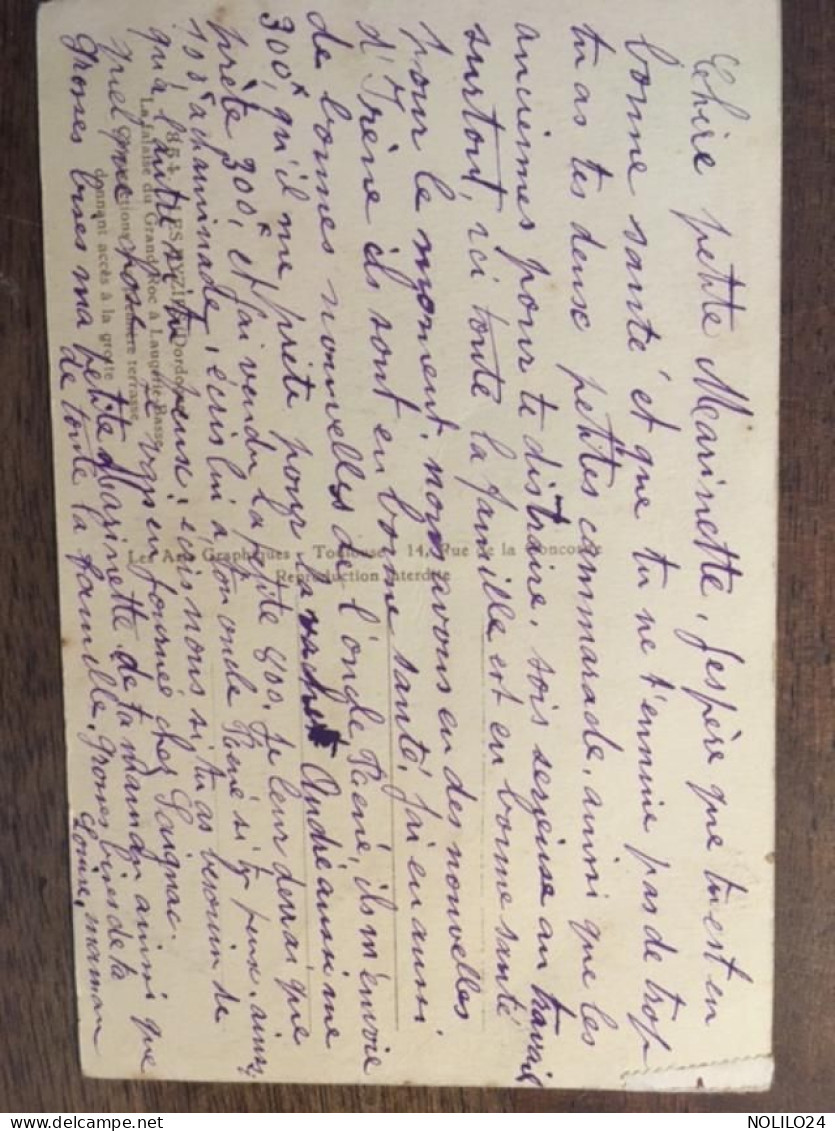 Chère petite Marinette, J'espère que tu est en
bonne santé et que tu ne t'ennuie pas de trop
tu as tes deux petites cammarade, ainsi que les
anciennes pour te distraire, sois serieuse au travail
surtout, ici toute la famille est en bonne santé
pour le moment, nous avons eu des nouvelles
d'Irène ils sont en bonne santé, j'ai eu aussi
de bonnes nouvelles de l'oncle Réné, ils m'envoie
300f, qu'il me prète pour la André aussi me
prète 300f, et j'ai vendu la petite 800, je leur devrai que
100f a chaminade, écris lui a ton oncle Réné si tu peux, ainsi
qu'à l'autre si tu peux, écris nous si tu as besouin de
quel que chose en tournée chez
Grosses bises ma petite Marinette de ta maman ainsi que
de toute la famille, Grosses bises de ta
maman
Louise,
854. LES EYZIES (Dordogne)
La falaise du Grand Roc à Laugerie Basse
terrasse
donnant accès à la grotte
Les Arts Graphiques - Toulouse, 14, Rue de la Concorde
Reproduction Interdite
NOLILO24